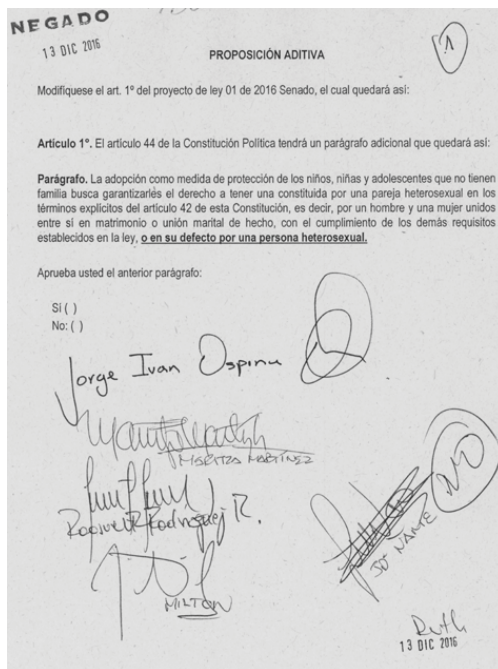 NEGADO
13 DIC 2016
1
PROPOSICIÓN ADITIVA
Modifíquese el art. 1º del proyecto de ley 01 de 2016 Senado, el cual quedará así:
Artículo 1°. El artículo 44 de la Constitución Política tendrá un parágrafo adicional que quedará así:
Parágrafo. La adopción como medida de protección de los niños, niñas y adolescentes que no tienen
familia busca garantizarles el derecho a tener una constituida por una pareja heterosexual en los
términos explícitos del artículo 42 de esta Constitución, es decir, por un hombre y una mujer unidos
entre sí en matrimonio o unión marital de hecho, con el cumplimiento de los demás requisitos
establecidos en la ley, o en su defecto por una persona heterosexual.
Aprueba usted el anterior parágrafo:
Sí ( )
No: ( )
Jorge Ivan Ospina
MARITZA MARTINEZ
Roosvelt Rodriguez R.
NO
NAME
MILTON
Ruth
13 DIC 2016